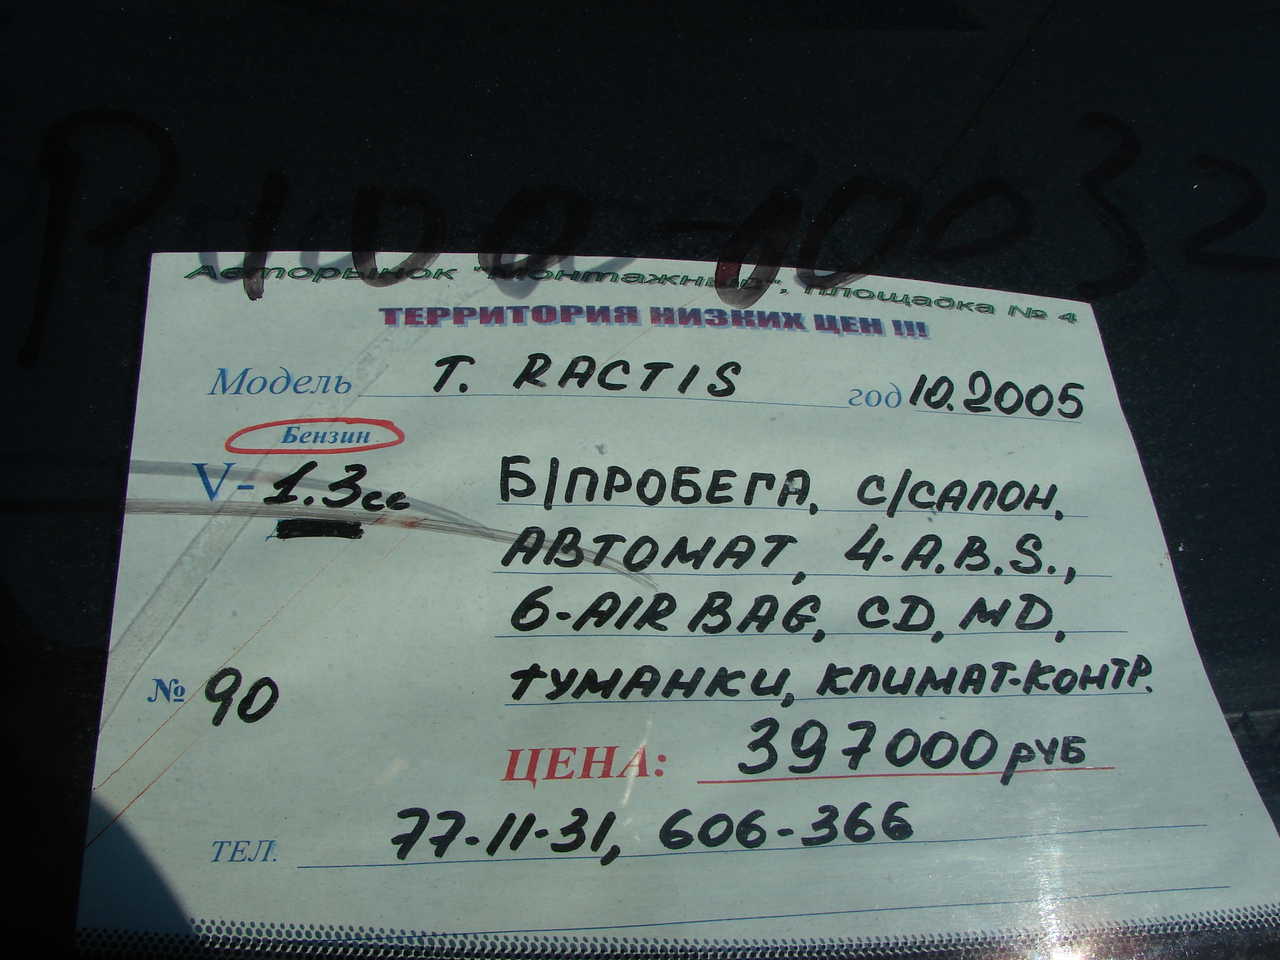 P100-100032
Авторынок "Монтажный", площадка № 4
ТЕРРИТОРИЯ НИЗКИХ ЦЕН !!!
Модель T. RACTIS год 10.2005
Бензин
V- 1.3 cc Б/ПРОБЕГА, С/САЛОН,
АВТОМАТ, 4-A.B.S.,
6-AIRBAG, CD, MD,
№ 90 ТУМАНКИ, КЛИМАТ-КОНТР.
ЦЕНА: 397000 РУБ
ТЕЛ. 77-11-31, 606-366